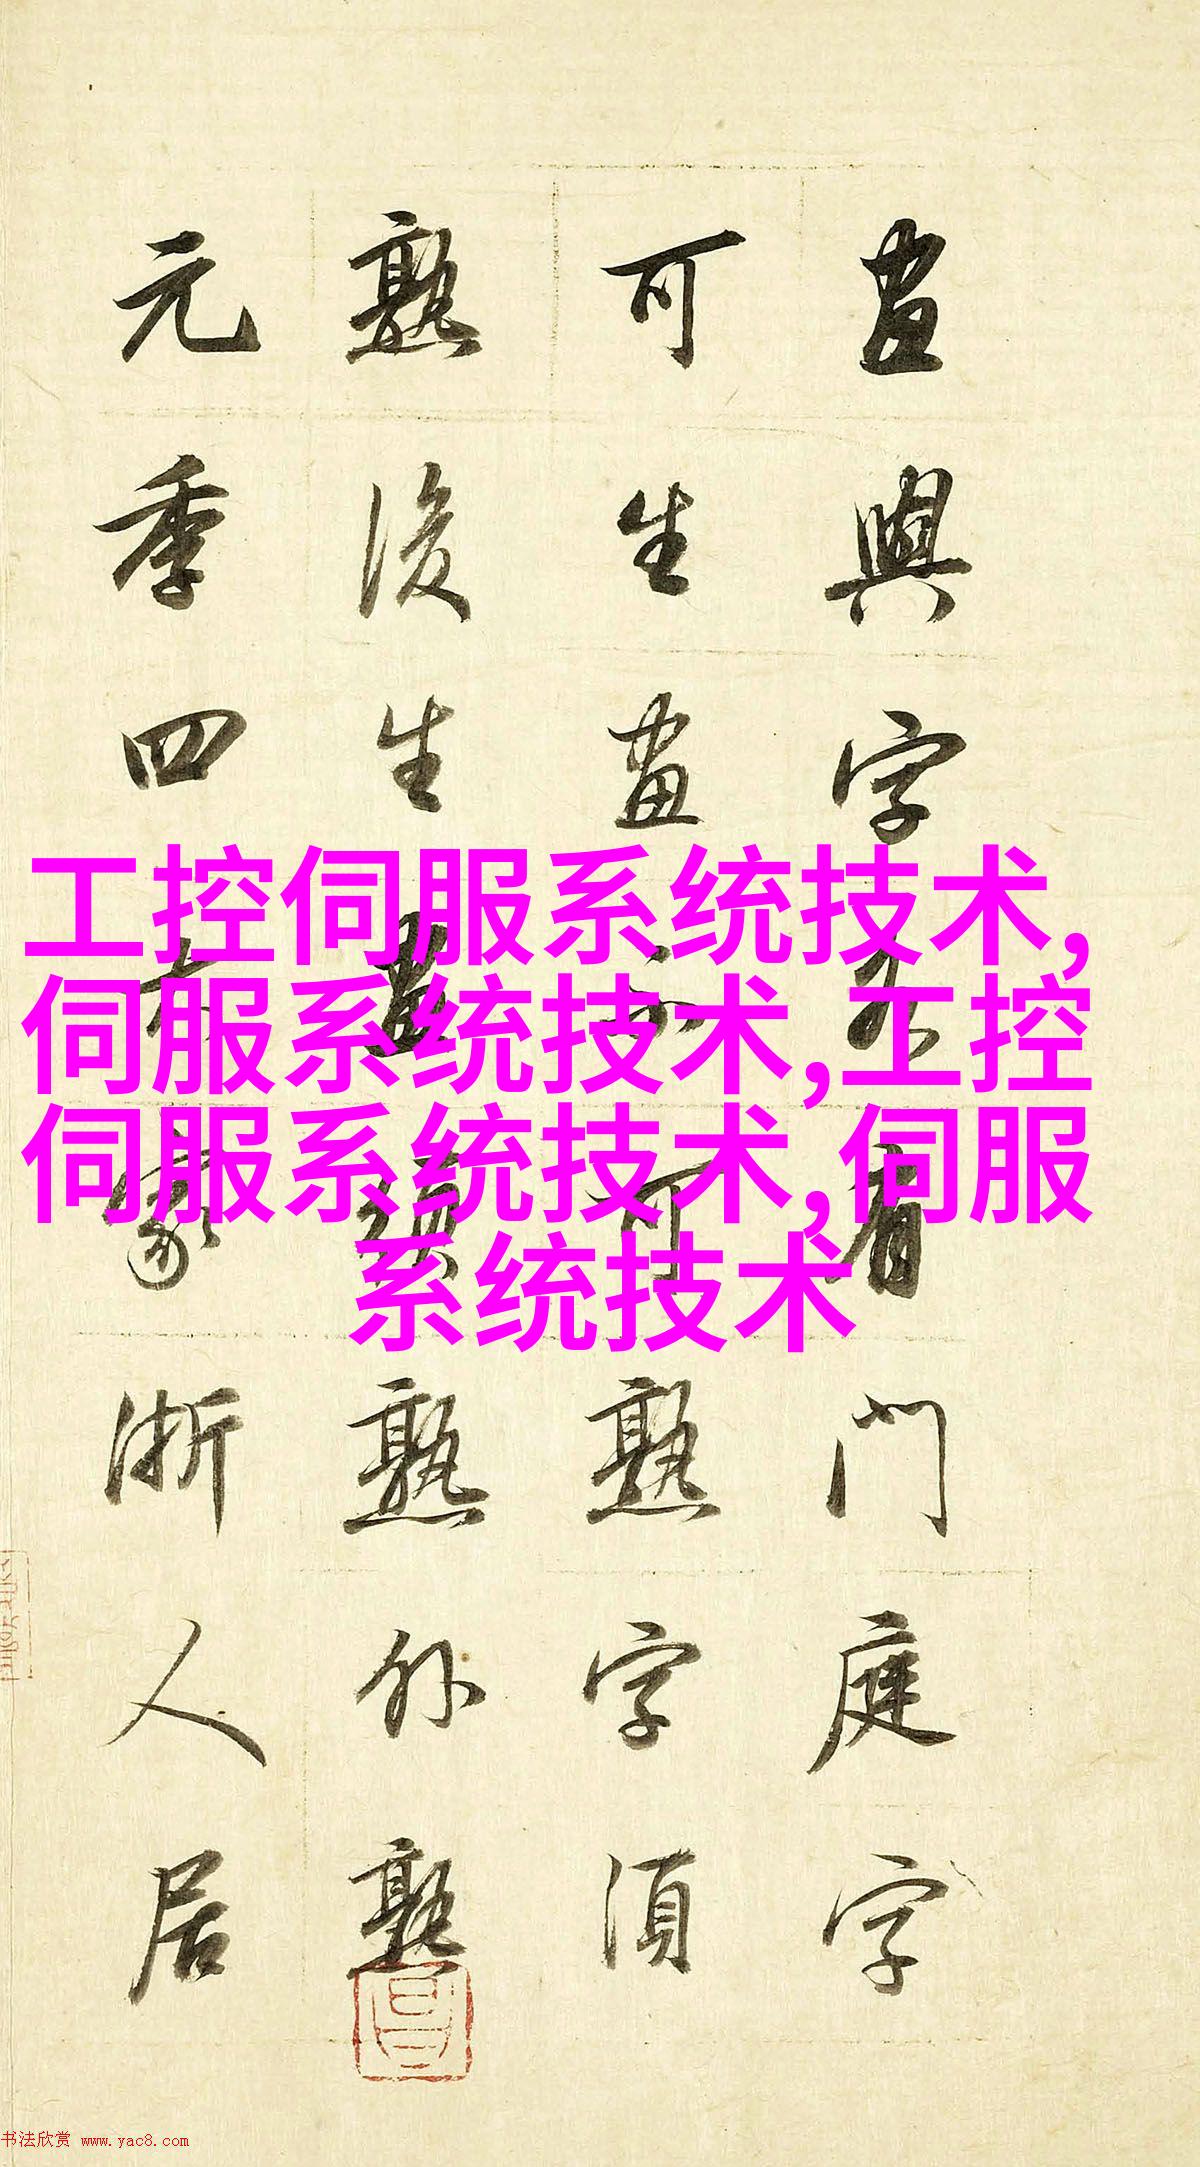 畫與字各有門庭字
可生畫不可熟字須
熟後生畫須熟外熟
元季四大家浙人居
工控伺服系统技术,
伺服系统技术,工控
伺服系统技术,伺服
系统技术
书法欣赏 www.yac8.com